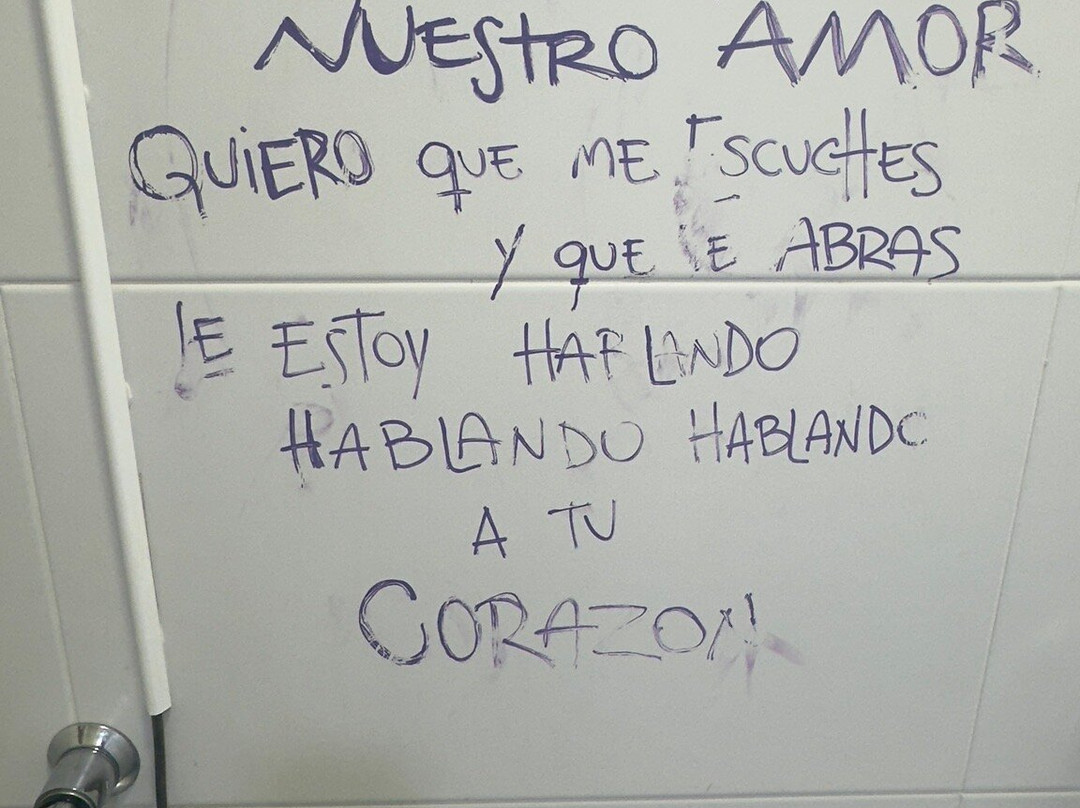 NUESTRO AMOR
QUIERO QUE ME ESCUCHES
Y QUE LE ABRAS
LE ESTOY HABLANDO
HABLANDO HABLANDO
A TU
CORAZON